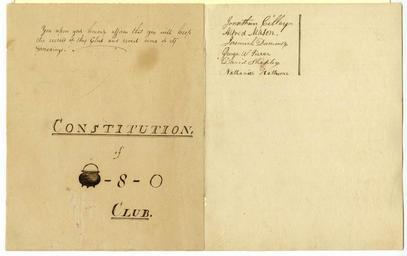 You upon your honour affirm that you will keep
the secrets of this Club and reveal none of its
proceedings.
CONSTITUTION.
of
-8-O
CLUB.
Jonathan Cilley
Alfred Mason.
Jeremiah Dummer
George W Pierce
David Shepley
Nathaniel Hathorne